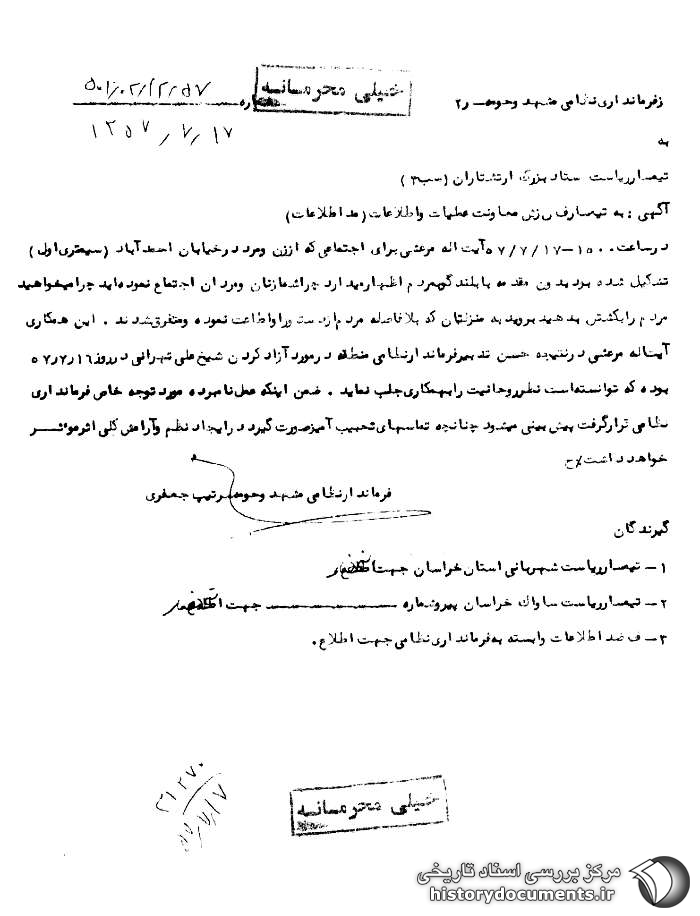 خیلی محرمانه
۵۰۱/۰۲/۱۲/۵۷
شماره
۱۳۵۷/۷/۱۷
ازفرمانداری نظامی مشهد وحومه ـ ر۲
به
تیمسارریاست ستاد بزرگ ارتشتاران (سب۳)
آگهی : به تیمسارف رزش معاونت عملیات واطلاعات (مد اطلاعات)
درساعت ۱۵۰۰-۵۷/۷/۱۷ آیت اله مرعشی برای اجتماعی که اززن ومرد درخیابان احمدآباد (سیمتری اول)
تشکیل شده بود بدون مقدمه بابلندگوبمردم اظهارمیدارد چراشمازنان ومردان اجتماع نموده‌اید چرامیخواهید
مردم رابکشتن بدهید بروید به منزلتان که بلافاصله مردم ازدستوراواطاعت نموده ومتفرق شدند . این همکاری
آیت‌اله مرعشی درنتیجه حسن تدبیرفرماندارنظامی منطقه درمورد آزاد کردن شیخ علی تهرانی درروز۵۷/۷/۱۶
بوده که توانسته‌است نظرروحانیت رابهمکاری جلب نماید . ضمن اینکه عمل نامبرده مورد توجه خاص فرمانداری
نظامی قرارگرفت پیش بینی میشود چنانچه تماسهای تحبیب آمیزصورت گیرد درایجاد نظم وآرامش کلی اثرموثــر
خواهد داشت/ح
فرماندارنظامی مشهد وحومه‌سرتیپ جعفری
گیرندگان
۱- تیمسارریاست شهربانی استان خراسان جهت اطلاع
۲- تیمسارریاست ساواک خراسان پیروشماره ـــــــ جهت اطلاع
۳- ف ضد اطلاعات وابسته به‌فرمانداری نظامی جهت اطلاع.
۳۱۲۷۰
۵۷/۷/۱۷
خیلی محرمانه
مرکز بررسی اسناد تاریخی
historydocuments.ir